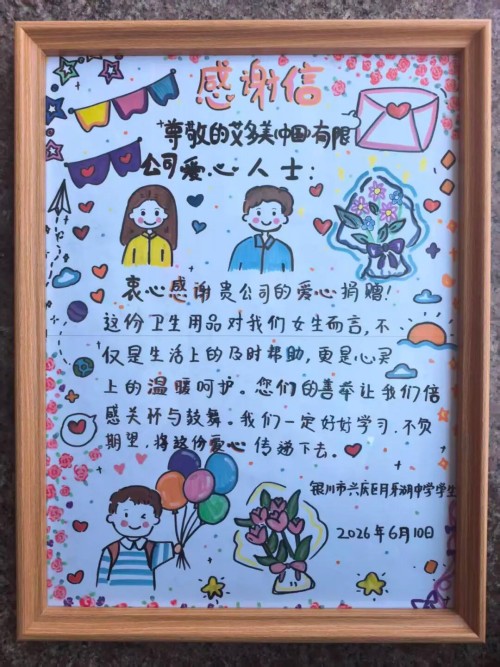 感谢信
尊敬的艾多美(中国)有限
公司爱心人士:
衷心感谢贵公司的爱心捐赠!
这份卫生用品对我们女生而言,不
仅是生活上的及时帮助,更是心灵
上的温暖呵护。您们的善举让我们倍
感关怀与鼓舞。我们一定好好学习,不负
期望,将这份爱心传递下去。
银川市兴庆区月牙湖中学学生
2026年6月10日